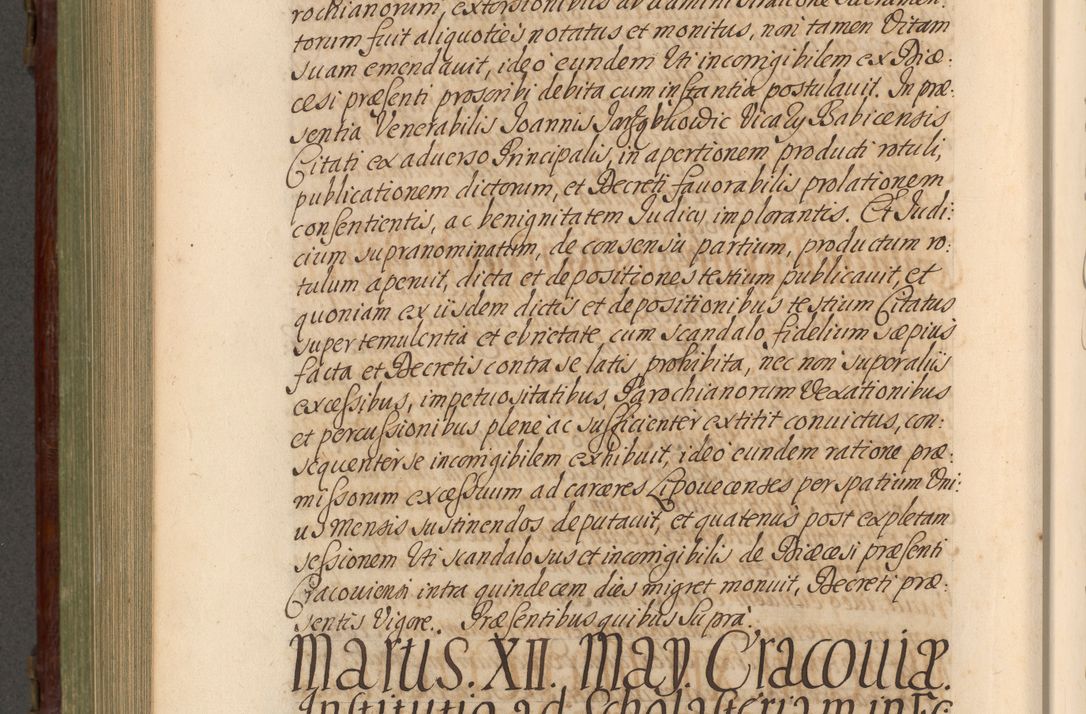 rochianorum, extorsionibus ab administratione Sacramen:
torum fuit aliquoties notatus et monitus, non tamen Vitam
suam emendauit, ideo eundem Uti incorrigibilem ex Diæ:
cesi præsenti proscribi debita cum instantia postulauit. In præ:
sentia Venerabilis Joannis Vicary Babicensis
Citati ex aduerso Principalis, in apertionem producti rotuli,
publicationem dictorum, et Decreti fauorabilis prolationem
consentientis, ac benignitatem Judicis implorantis. Et Judi:
cium supranominatum, de consensu partium, productum ro:
tulum aperuit, dicta et depositiones testium publicauit, et
quoniam ex iisdem dictis et depositionibus testium Citatus
super temulentia et ebrietate cum scandalo fidelium sæpius
facta et Decretis contra se latis prohibita, nec non super aliis
excessibus, impetuositatibus Parochianorum Vexationibus
et percussionibus plene ac sufficienter extitit conuictus, con:
sequenter se incorrigibilem exhibuit, ideo eundem ratione præ:
missorum excessuum ad carceres Lipouecenses per spatium Uni:
us Mensis sustinendos deputauit, et quatenus post expletam
sessionem Uti scandalosus et incorrigibilis de Diæcesi præsenti
Cracouiensi intra quindecem dies migret monuit, Decreti præ:
sentis Vigore. Præsentibus quibus Supra.
Martis. XII. May. Cracouiæ.
Institutio ad Scholasteriam in Ec